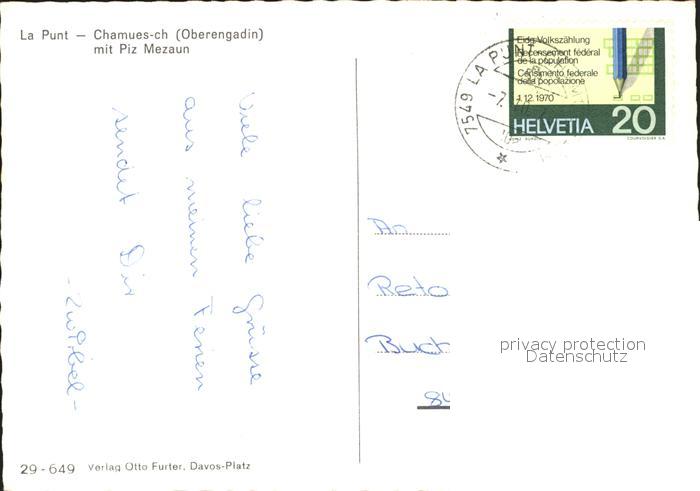 La Punt — Chamues-ch (Oberengadin)
mit Piz Mezaun
Viele liebe Grüsse
aus meinen Ferien
sendet Dir
Eidg. Volkszählung
Recensement fédéral
de la population
Censimento federale
della popolazione
1.12.1970
HELVETIA 20
COURVOISIER S.A.
7549 LA PUNT
An
Reto
Buch
84
privacy protection
Datenschutz
29-649 Verlag Otto Furter, Davos-Platz